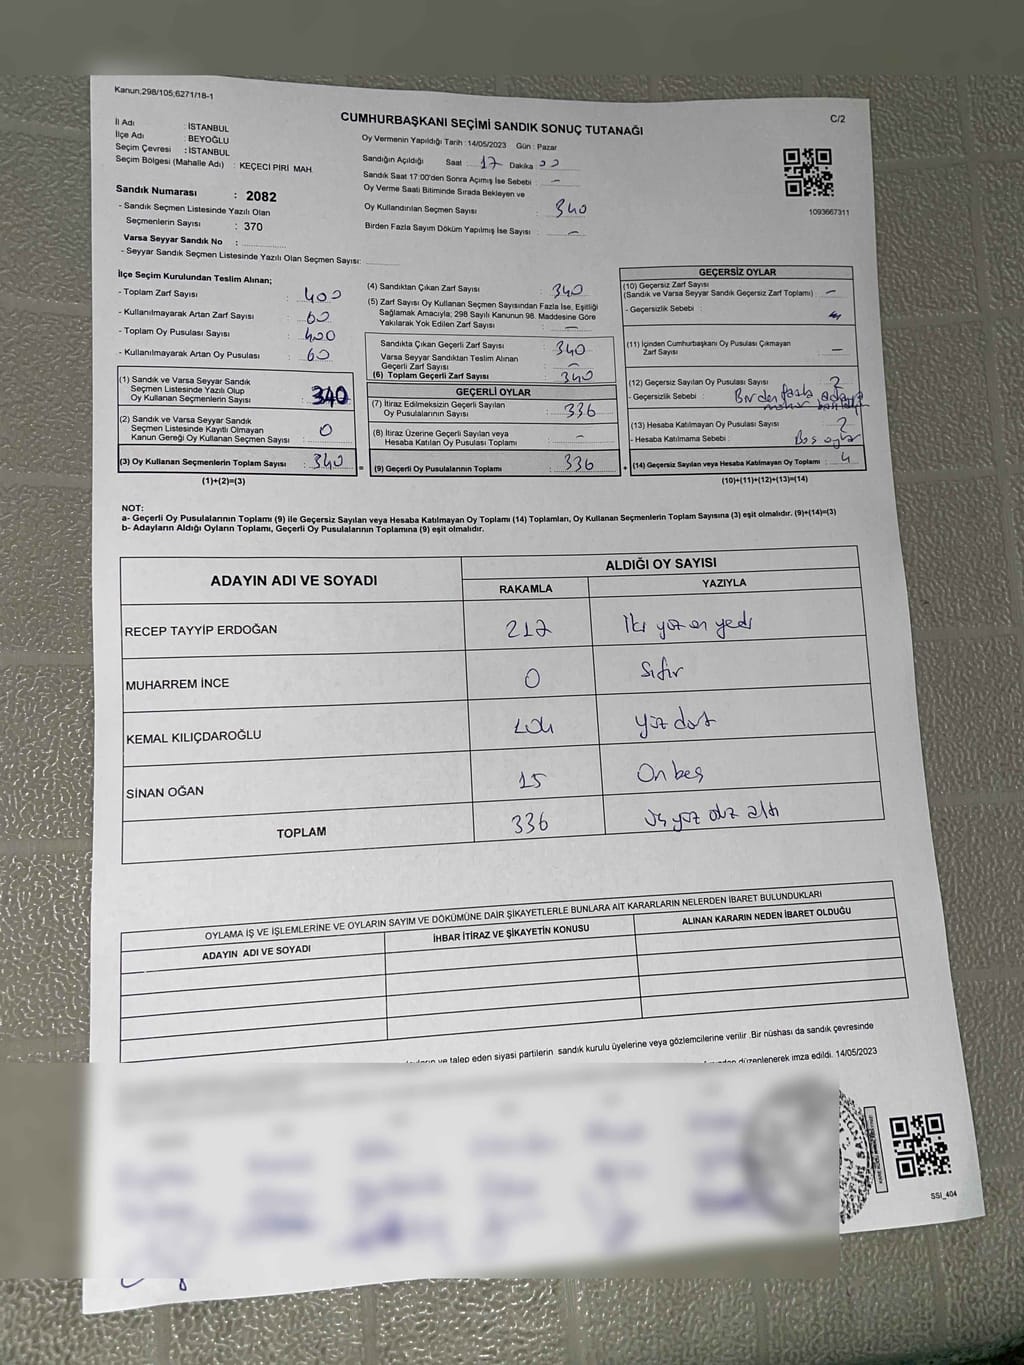 Kanun,298/105,6271/18-1
C/2
CUMHURBAŞKANI SEÇİMİ SANDIK SONUÇ TUTANAĞI
İl Adı : İSTANBUL
İlçe Adı : BEYOĞLU
Seçim Çevresi : İSTANBUL
Seçim Bölgesi (Mahalle Adı) : KEÇECİ PİRİ MAH
Oy Vermenin Yapıldığı Tarih : 14/05/2023 Gün : Pazar
Sandığın Açıldığı Saat 17 Dakika 00
Sandık Saat 17:00'den Sonra Açımış İse Sebebi : -
Oy Verme Saati Bitiminde Sırada Bekleyen ve
Oy Kullandırılan Seçmen Sayısı : 340
Birden Fazla Sayım Döküm Yapılmış İse Sayısı : -
1093667311
Sandık Numarası : 2082
- Sandık Seçmen Listesinde Yazılı Olan
Seçmenlerin Sayısı : 370
Varsa Seyyar Sandık No :
- Seyyar Sandık Seçmen Listesinde Yazılı Olan Seçmen Sayısı:
İlçe Seçim Kurulundan Teslim Alınan;
- Toplam Zarf Sayısı : 400
- Kullanılmayarak Artan Zarf Sayısı : 60
- Toplam Oy Pusulası Sayısı : 400
- Kullanılmayarak Artan Oy Pusulası : 60
(1) Sandık ve Varsa Seyyar Sandık
Seçmen Listesinde Yazılı Olup
Oy Kullanan Seçmenlerin Sayısı : 340
(2) Sandık ve Varsa Seyyar Sandık
Seçmen Listesinde Kayıtlı Olmayan
Kanun Gereği Oy Kullanan Seçmen Sayısı : 0
(3) Oy Kullanan Seçmenlerin Toplam Sayısı : 340
(1)+(2)=(3)
(4) Sandıktan Çıkan Zarf Sayısı : 340
(5) Zarf Sayısı Oy Kullanan Seçmen Sayısından Fazla İse, Eşitliği
Sağlamak Amacıyla; 298 Sayılı Kanunun 98. Maddesine Göre
Yakılarak Yok Edilen Zarf Sayısı : -
Sandıkta Çıkan Geçerli Zarf Sayısı : 340
Varsa Seyyar Sandıktan Teslim Alınan
Geçerli Zarf Sayısı : -
(6) Toplam Geçerli Zarf Sayısı : 340
GEÇERLİ OYLAR
(7) İtiraz Edilmeksizin Geçerli Sayılan
Oy Pusulalarının Sayısı : 336
(8) İtiraz Üzerine Geçerli Sayılan veya
Hesaba Katılan Oy Pusulası Toplamı : -
= (9) Geçerli Oy Pusulalarının Toplamı : 336
GEÇERSİZ OYLAR
(10) Geçersiz Zarf Sayısı
(Sandık ve Varsa Seyyar Sandık Geçersiz Zarf Toplamı) : -
- Geçersizlik Sebebi :
(11) İçinden Cumhurbaşkanı Oy Pusulası Çıkmayan
Zarf Sayısı : -
(12) Geçersiz Sayılan Oy Pusulası Sayısı : 2
- Geçersizlik Sebebi : Birden fazla adaya
mühür
(13) Hesaba Katılmayan Oy Pusulası Sayısı : 2
- Hesaba Katılmama Sebebi : Boş oylar
+ (14) Geçersiz Sayılan veya Hesaba Katılmayan Oy Toplamı : 4
(10)+(11)+(12)+(13)=(14)
NOT:
a- Geçerli Oy Pusulalarının Toplamı (9) ile Geçersiz Sayılan veya Hesaba Katılmayan Oy Toplamı (14) Toplamları, Oy Kullanan Seçmenlerin Toplam Sayısına (3) eşit olmalıdır. (9)+(14)=(3)
b- Adayların Aldığı Oyların Toplamı, Geçerli Oy Pusulalarının Toplamına (9) eşit olmalıdır.
ADAYIN ADI VE SOYADI
ALDIĞI OY SAYISI
RAKAMLA YAZIYLA
RECEP TAYYİP ERDOĞAN 217 İki yüz on yedi
MUHARREM İNCE 0 Sıfır
KEMAL KILIÇDAROĞLU 104 yüz dört
SİNAN OĞAN 15 On beş
TOPLAM 336 üç yüz otuz altı
OYLAMA İŞ VE İŞLEMLERİNE VE OYLARIN SAYIM VE DÖKÜMÜNE DAİR ŞİKAYETLERLE BUNLARA AİT KARARLARIN NELERDEN İBARET BULUNDUKLARI
ADAYIN ADI VE SOYADI
İHBAR İTİRAZ VE ŞİKAYETİN KONUSU
ALINAN KARARIN NEDEN İBARET OLDUĞU
ve talep eden siyasi partilerin sandık kurulu üyelerine veya gözlemcilerine verilir .Bir nüshası da sandık çevresinde
düzenlenerek imza edildi. 14/05/2023
SSI_404